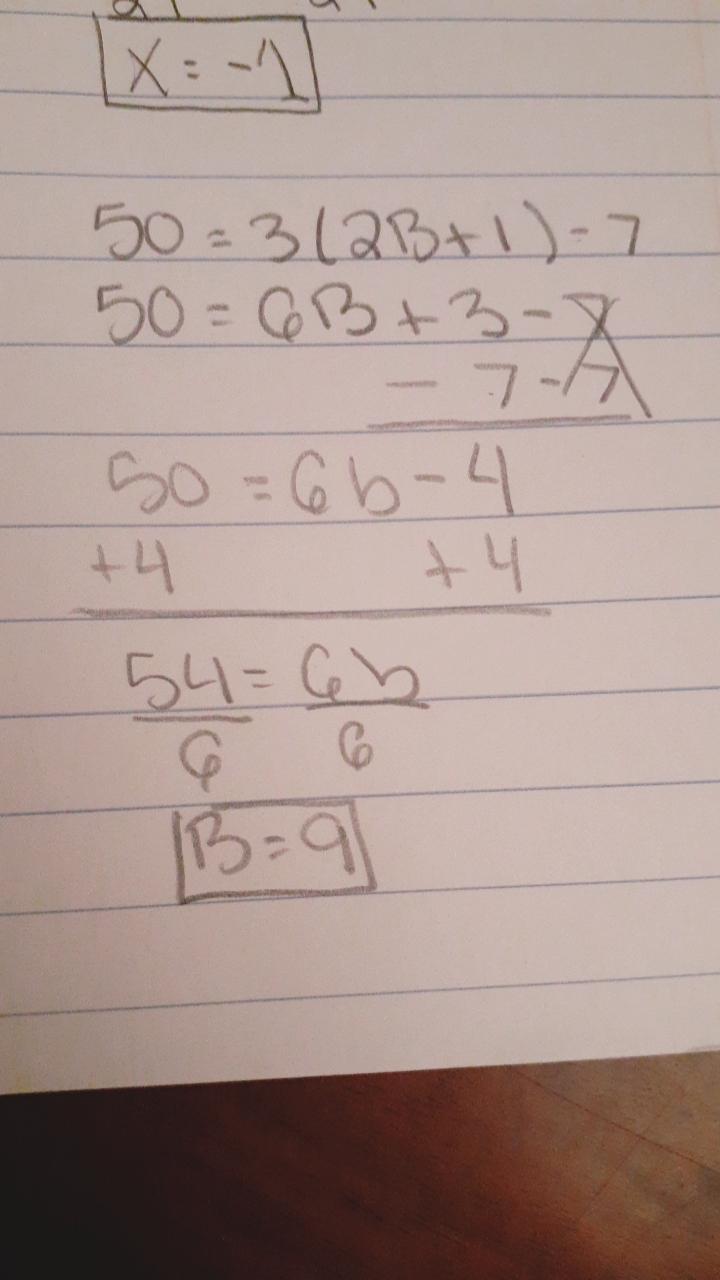 x = -1
50 = 3(2B+1)-7
50 = 6B + 3 - 7
- 7 - 7
50 = 6b - 4
+4 +4
54 = 6b
6 6
B = 9